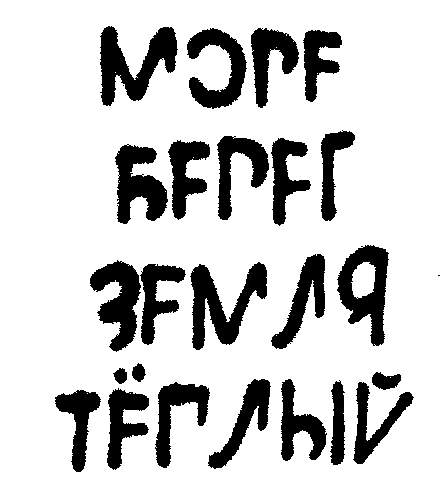 МОРЕ
БЕРЕГ
ЗЕМЛЯ
ТЁПЛЫЙ